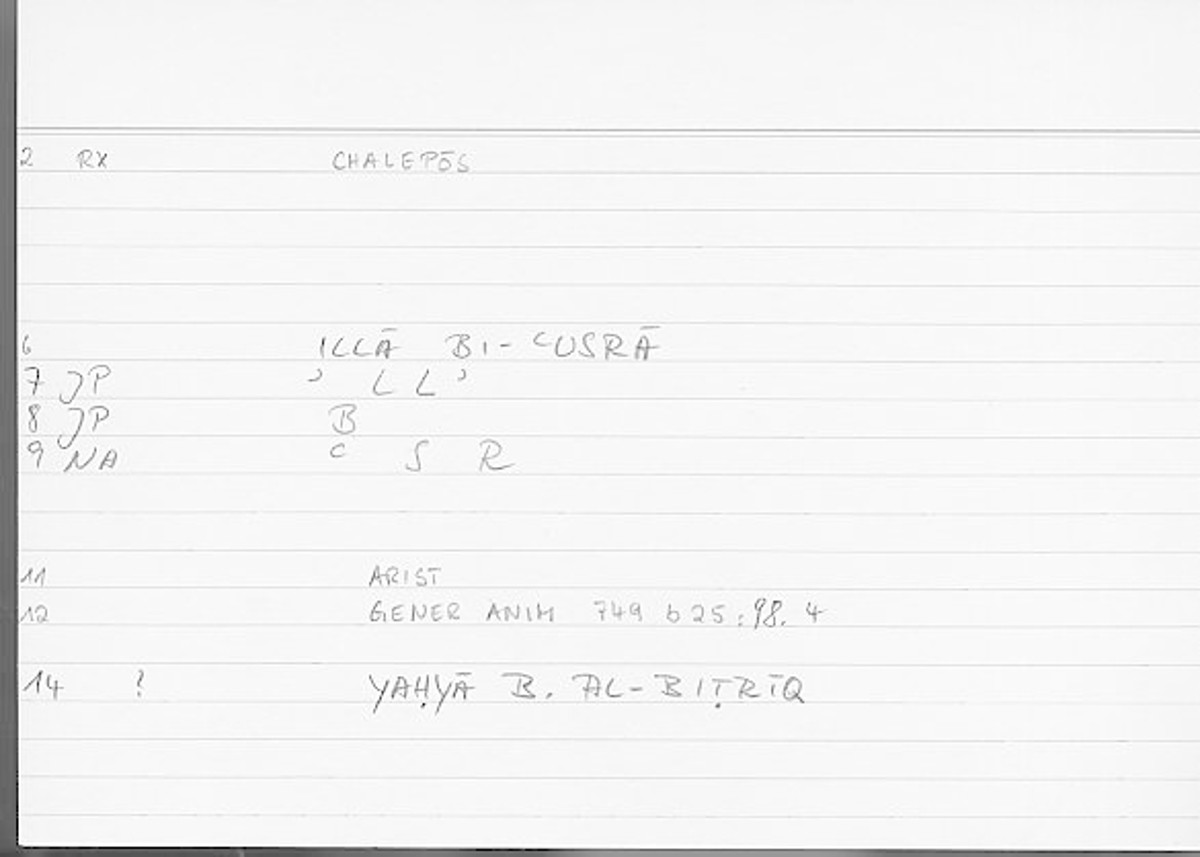 2 RX CHALEPŌS
6 ILLĀ BI- ʿUSRĀ
7 JP ʾ L L ʾ
8 JP B
9 NA ʿ S R
11 ARIST
12 GENER ANIM 749 b 25 : 98. 4
14 ? YAḤYĀ B. AL-BIṬRĪQ